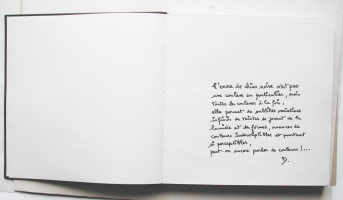 L'encre de chine noire n'est pas
une couleur en particulier, mais
toutes les couleurs à la fois,
elle permet de subtiles variations
infinies de teintes se jouant de la
lumière et des formes, nuances de
couleurs indescriptibles et pourtant
si perceptibles,
peut-on encore parler de couleurs !...
D.